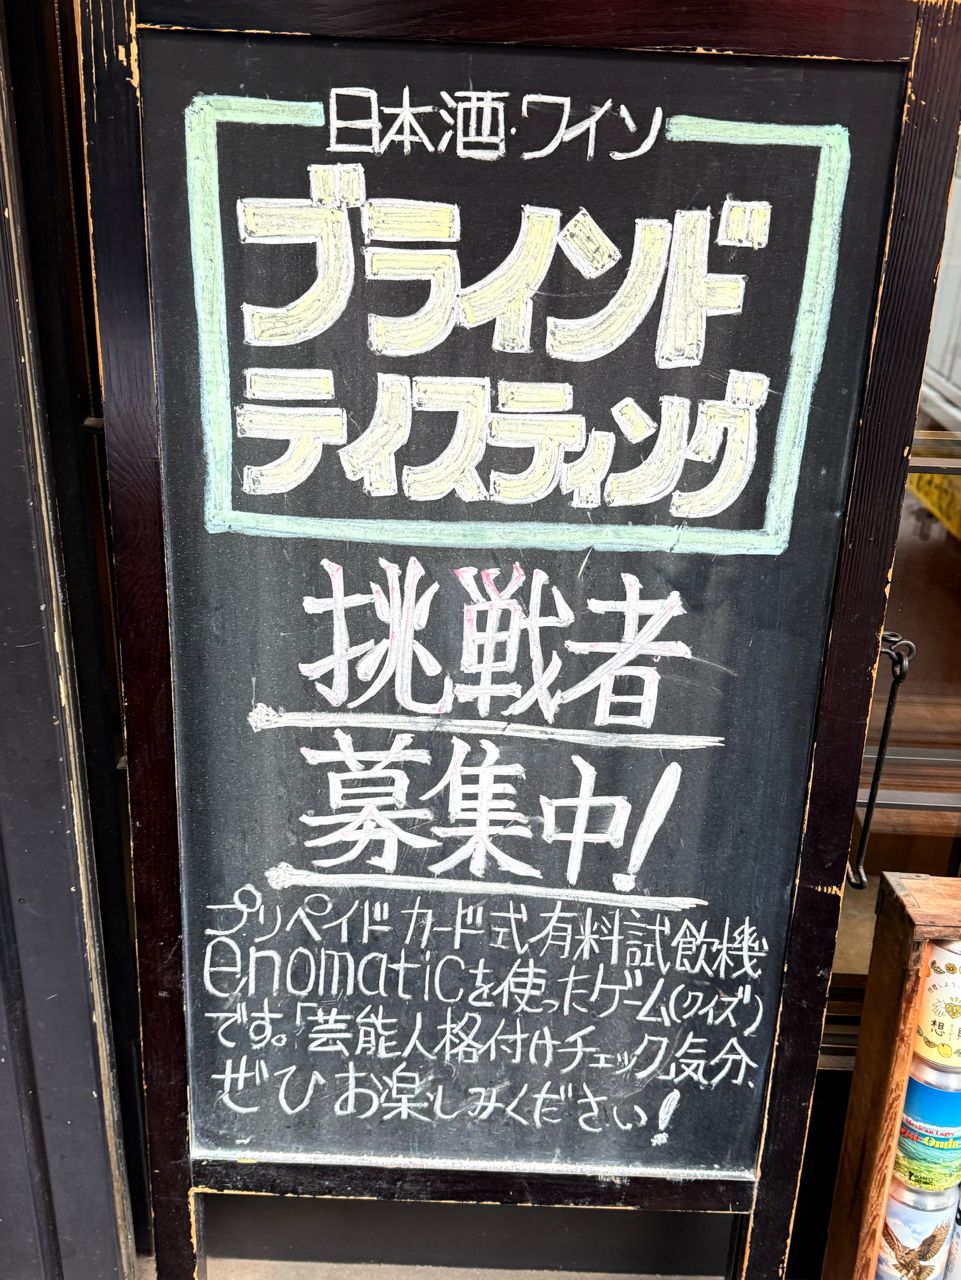 日本酒・ワイン
ブラインド
テイスティング
挑戦者
募集中!
プリペイドカード式有料試飲機
enomaticを使ったゲーム(クイズ)
です。「芸能人格付けチェック」気分、
ぜひお楽しみください!
想
Mexican Lager